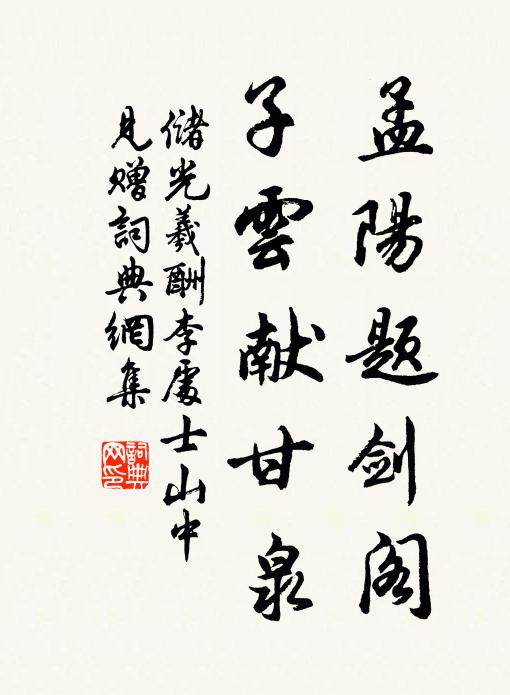 孟陽題剑阁
子雲献甘泉
儲光羲酬李處士山中
見贈詞典網集
詞典
网印